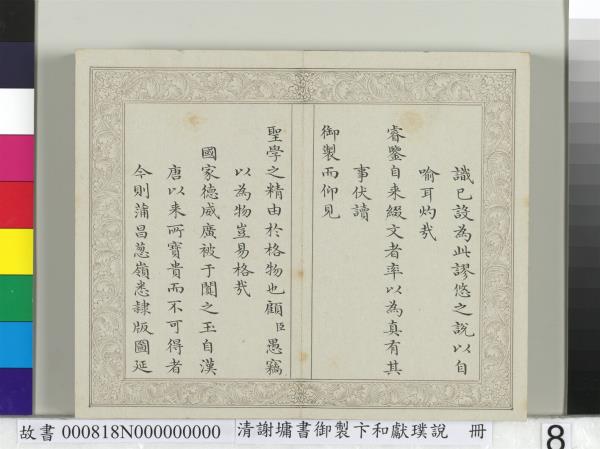 識已設為此謬悠之說以自
喻耳灼哉
睿鑒自来綴文者率以為真有其
事伏讀
御製而仰見
聖學之精由於格物也顧臣愚竊
以為物豈易格哉
國家德威廣被于闐之玉自漢
唐以来所寶貴而不可得者
今則蒲昌蔥嶺悉隷版圖延
故書 000818N000000000 清謝墉書御製卞和獻璞說 冊
8